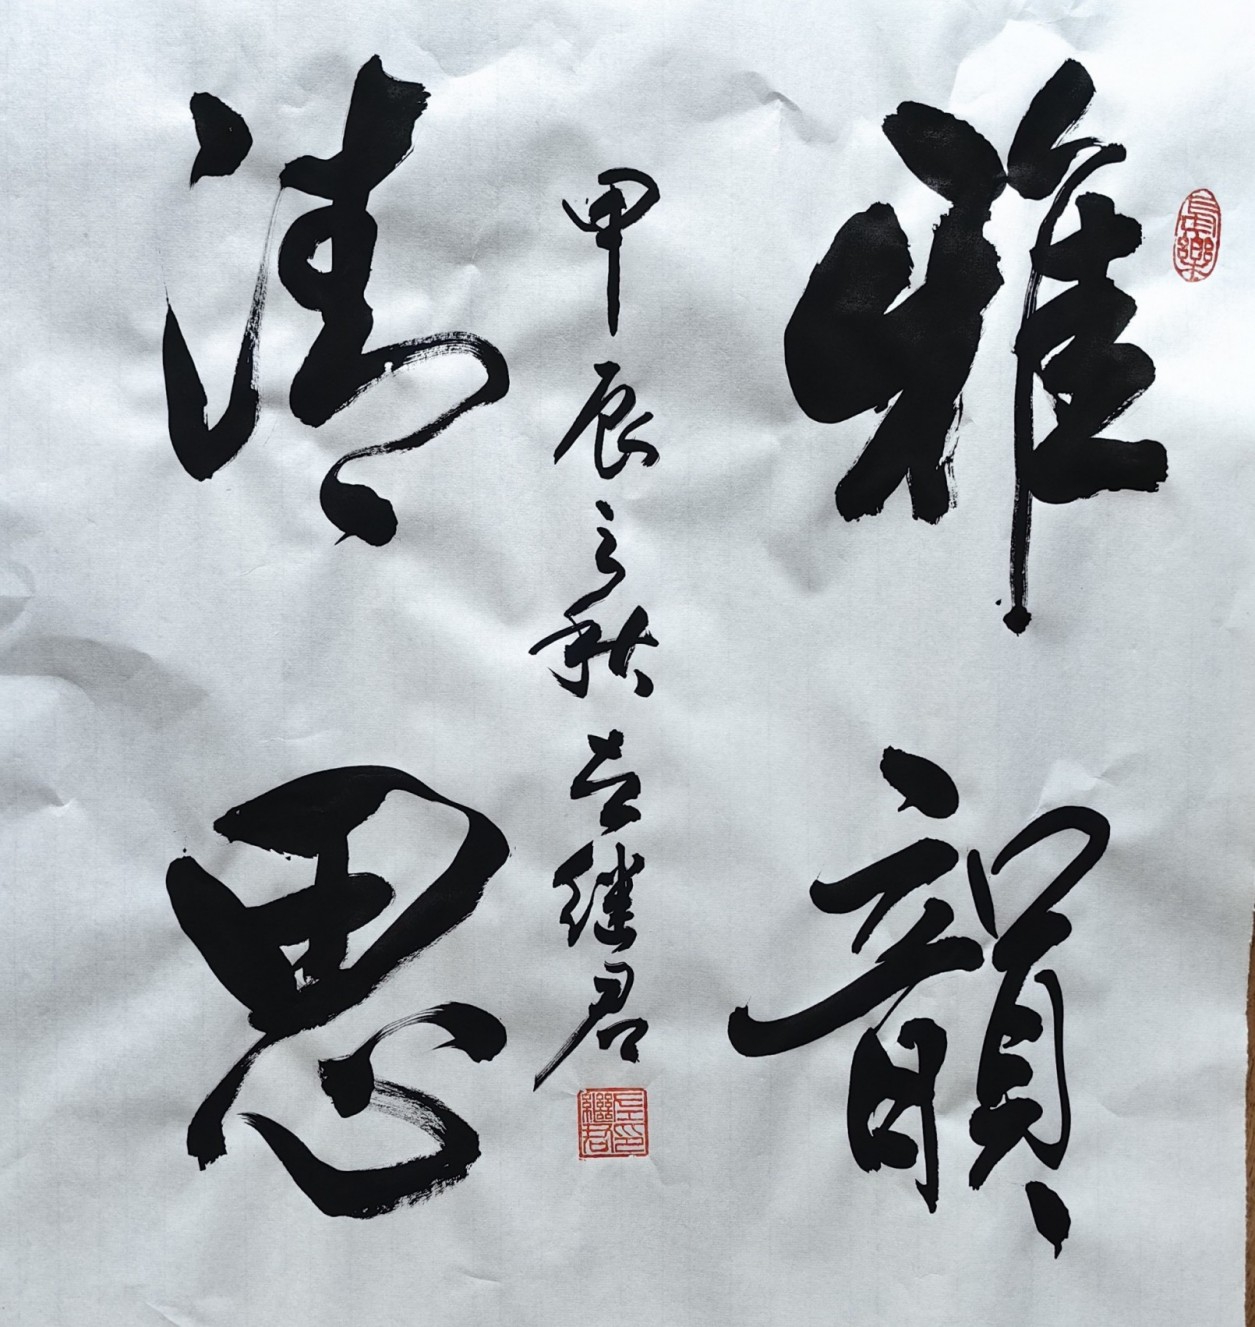 雅韻
清思
甲辰之秋 继君